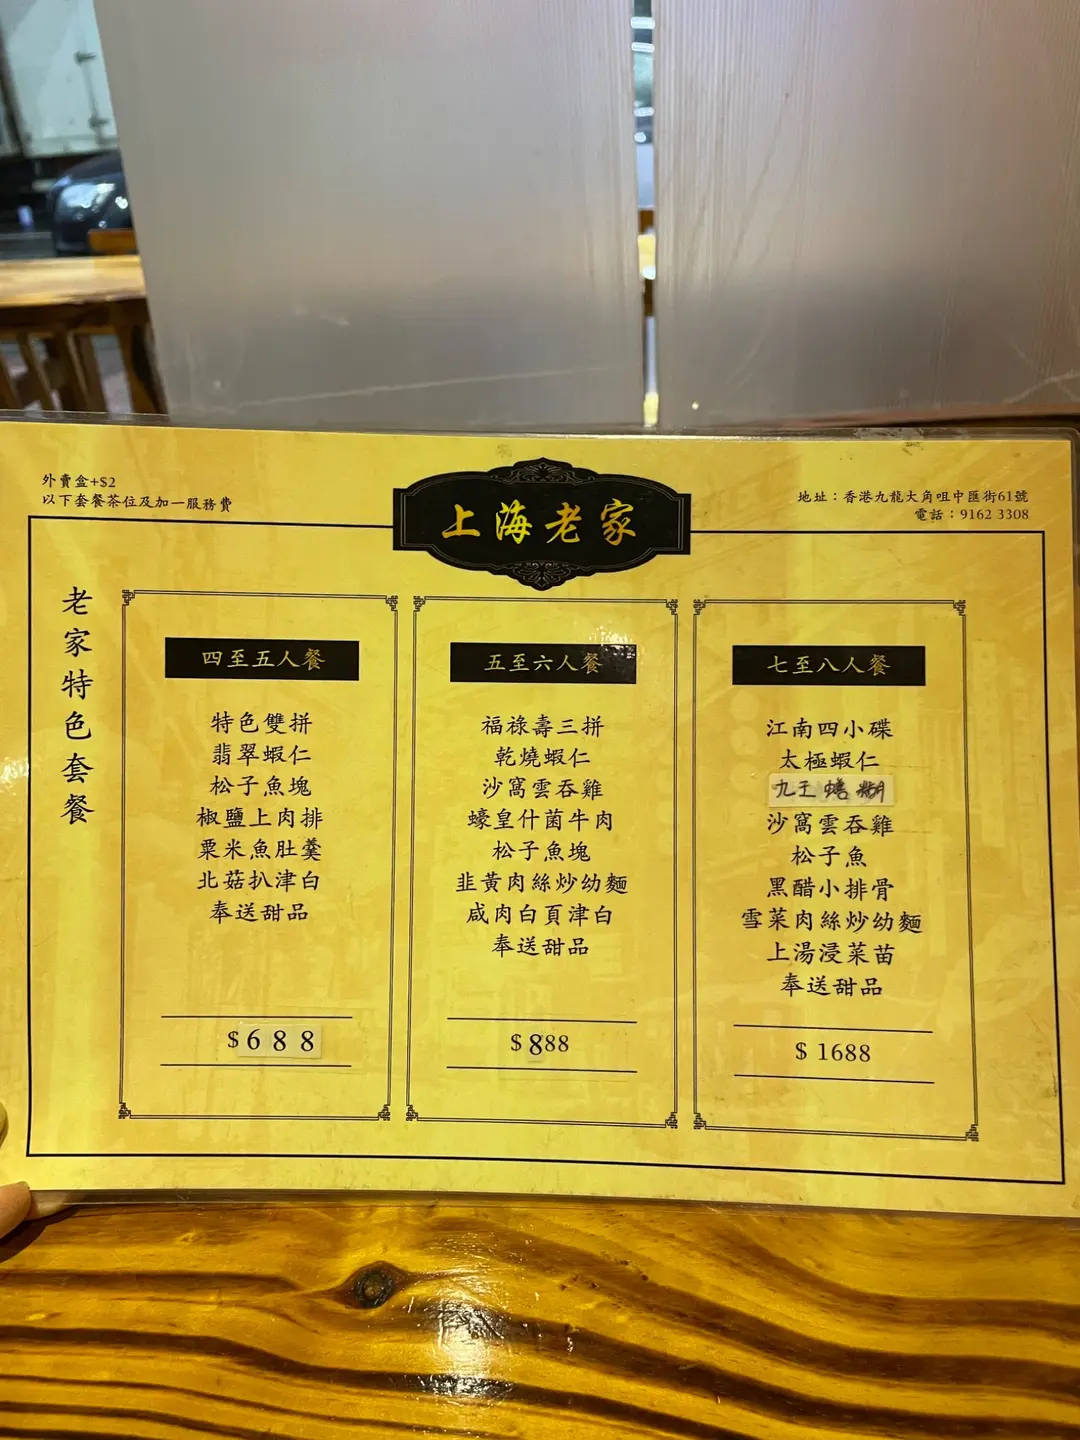 外賣盒+$2
以下套餐茶位及加一服務費
上海老家
地址：香港九龍大角咀中匯街61號
電話：9162 3308
老家特色套餐
四至五人餐
特色雙拼
翡翠蝦仁
松子魚塊
椒鹽上肉排
粟米魚肚羹
北菇扒津白
奉送甜品
$688
五至六人餐
福祿壽三拼
乾燒蝦仁
沙窩雲吞雞
蠔皇什菌牛肉
松子魚塊
韭黃肉絲炒幼麵
咸肉白頁津白
奉送甜品
$888
七至八人餐
江南四小碟
太極蝦仁
九王鱔糊
沙窩雲吞雞
松子魚
黑醋小排骨
雪菜肉絲炒幼麵
上湯浸菜苗
奉送甜品
$ 1688